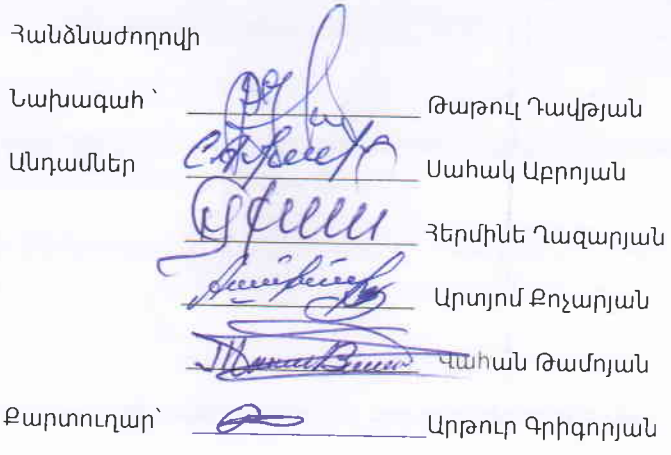 Հանձնաժողովի
Նախագահ ՝ Թաթուլ Դավթյան
Անդամներ Սահակ Աբրոյան
Հերմինե Ղազարյան
Արտյոմ Քոչարյան
Վահան Թամոյան
Քարտուղար՝ Արթուր Գրիգորյան